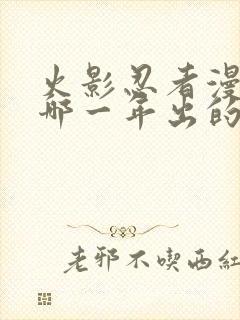 火影忍者漫
哪一年出的
老邪不喫西紅